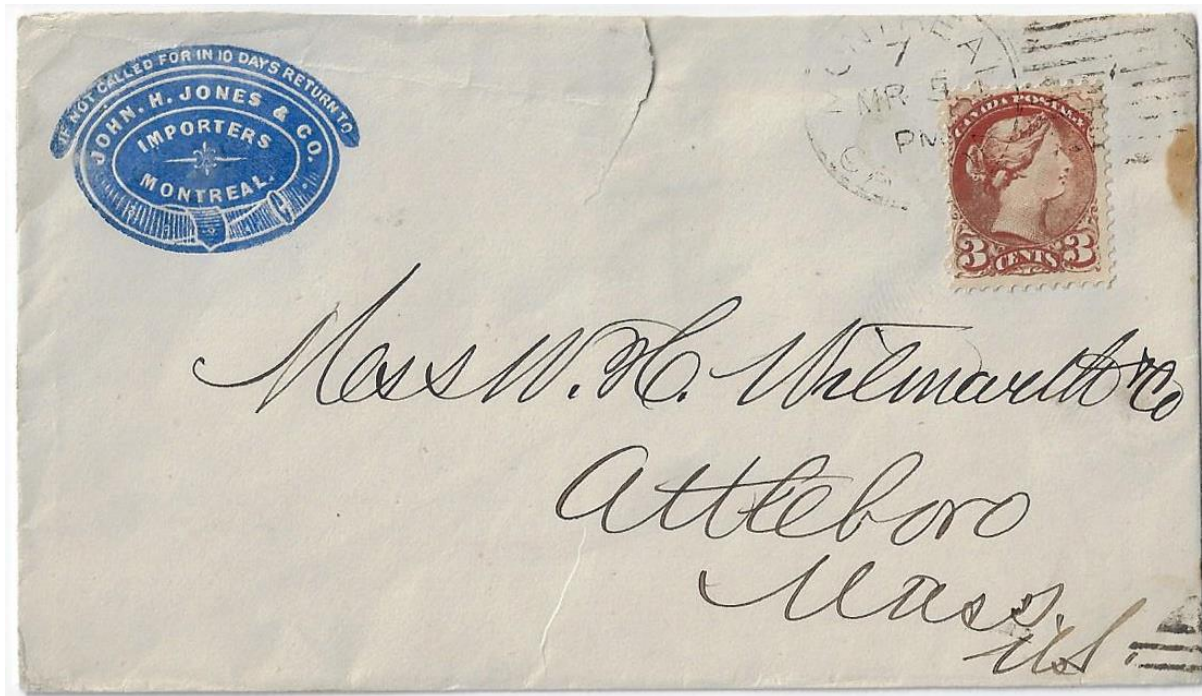 IF NOT CALLED FOR IN 10 DAYS RETURN TO
JOHN. H. JONES & CO.
IMPORTERS
MONTREAL.
MONTREAL
7
MR 5
PM
CA
CANADA POSTAGE
3 CENTS 3
Mess W. H. Wilmarth & Co
Attleboro
Mass.
U.S.